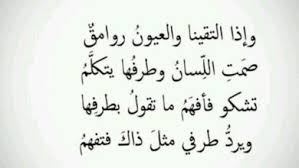 وإذا التقينا والعيونُ روامقٌ
صمَتِ اللِّسانُ وطرفُها يتكلَّمُ
تشكو فأفهَمُ ما تقولُ بطرفِها
ويردُّ طرفي مثلَ ذاكَ فتفهمُ